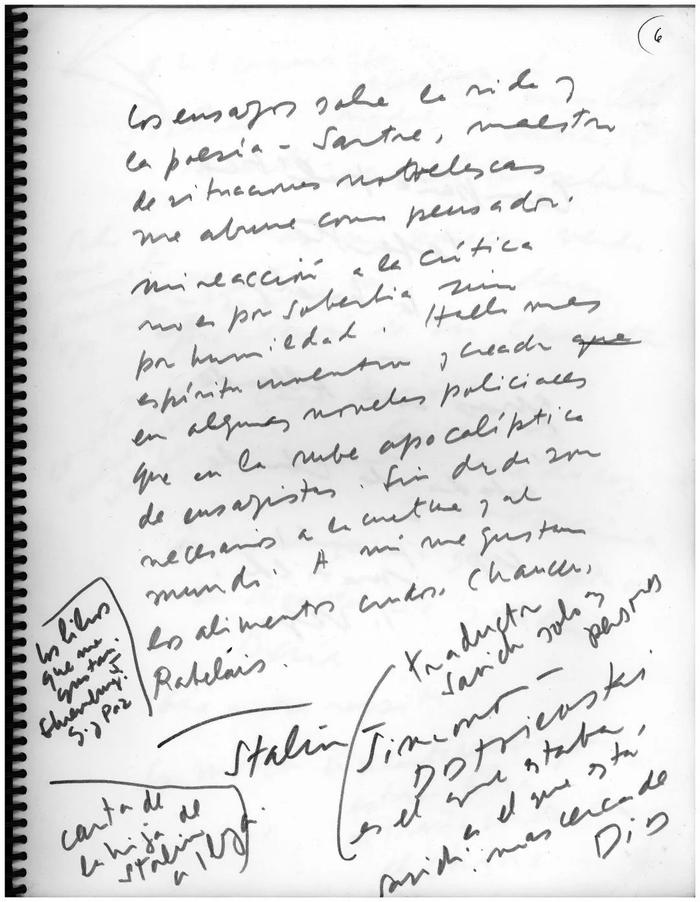 6
los ensayos sobre la vida y
la poesía - Sartre, maestro
de situaciones novelescas
me abruma como pensador.
mi reacción a la crítica
no es por soberbia sino
por humildad. Hallo mas
espíritu inventivo y creador que
en algunas novelas policiales
que en la nube apocalíptica
de ensayistas. Sin duda son
necesarios a la cultura y al
mundo. A mi me gustan
los alimentos crudos, Chaucer,
Rabelais.
los libros
que me
gustan.
Ehrenburg.
Stalin
carta de
la hija de
Stalin
a
traductor
Simonov -
es el que estaba,
es el que está
mas cerca de
Dios